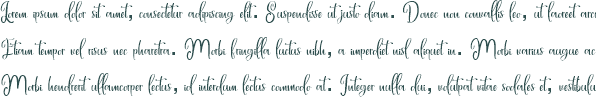 Lorem ipsum dolor sit amet, consectetur adipiscing elit. Suspendisse ut justo diam. Donec non convallis leo, ut laoreet arcu
Etiam tempor vel risus nec pharetra. Morbi fringilla luctus nibh, a imperdiet nisl aliquet in. Morbi varius augue ac
Morbi hendrerit ullamcorper lectus, id interdum lectus commodo at. Integer nulla dui, volutpat vitae sodales et, vestibulu